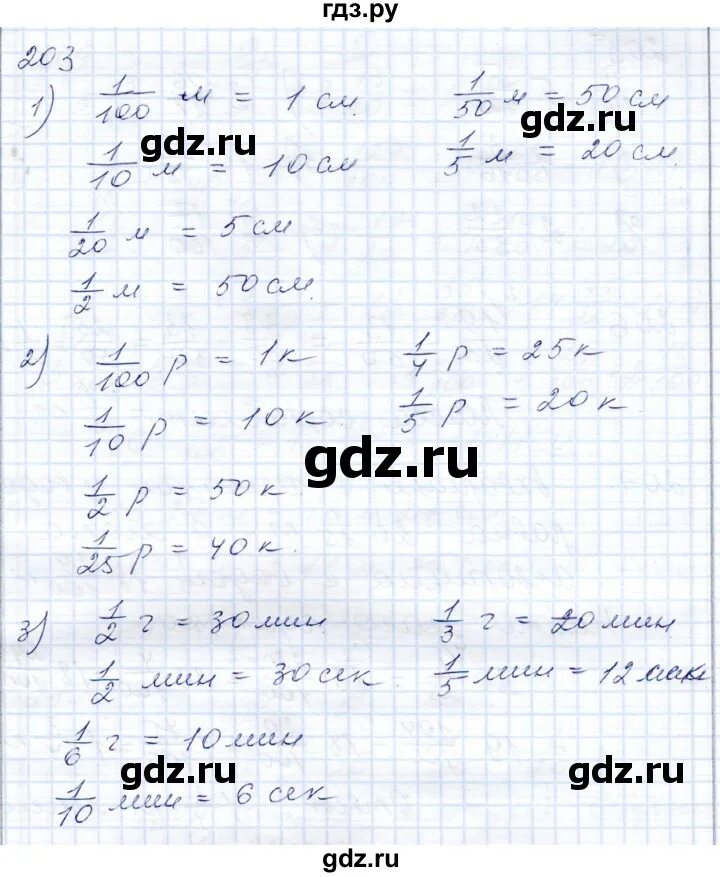 гдз.ру
203
1) 1/100 м = 1 см. 1/50 м = 50 см
gdz.ru gdz.ru
1/10 м = 10 см 1/5 м = 20 см.
1/20 м = 5 см
1/2 м = 50 см.
2) 1/100 р = 1 к 1/4 р = 25 к
1/10 р = 10 к. 1/5 р = 20 к.
gdz.ru
1/2 р = 50 к.
1/25 р = 40 к.
3) 1/2 г = 30 мин. 1/3 г = 20 мин
1/2 мин = 30 сек. 1/5 мин = 12
1/6 г = 10 мин
gdz.ru gdz.ru
1/10 мин = 6 сек
gdz.ru